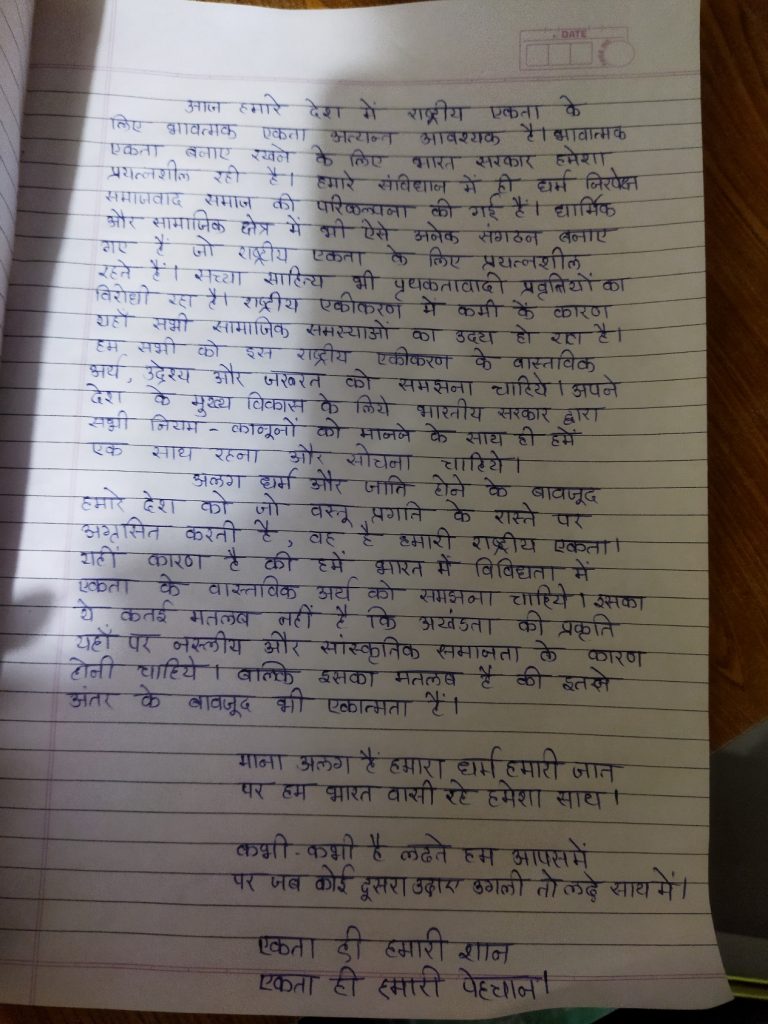 DATE
आज हमारे देश में राष्ट्रीय एकता के
लिए भावत्मक एकता अत्यन्त आवश्यक है। भावात्मक
एकता बनाए रखने के लिए भारत सरकार हमेशा
प्रयत्नशील रही है। हमारे संविधान में ही धर्म निरपेक्ष
समाजवाद समाज की परिकल्पना की गई है। धार्मिक
और सामाजिक क्षेत्र में भी ऐसे अनेक संगठन बनाए
गए हैं जो राष्ट्रीय एकता के लिए प्रयत्नशील
रहते हैं। सच्चा साहित्य भी पृथकतावादी प्रवृत्तियों का
विरोधी रहा है। राष्ट्रीय एकीकरण में कमी के कारण
यहाँ सभी सामाजिक समस्याओं का उदय हो रहा है।
हम सभी को इस राष्ट्रीय एकीकरण के वास्तविक
अर्थ, उद्देश्य और जरूरत को समझना चाहिये। अपने
देश के मुख्य विकास के लिये भारतीय सरकार द्वारा
सभी नियम - कानूनों को मानने के साथ ही हमें
एक साथ रहना और सोचना चाहिये।
अलग धर्म और जाति होने के बावजूद
हमारे देश को जो वस्तू प्रगति के रास्ते पर
अग्रसित करती है, वह है हमारी राष्ट्रीय एकता।
यही कारण है की हमें भारत में विविधता में
एकता के वास्तविक अर्थ को समझना चाहिये। इसका
ये कतई मतलब नहीं है कि अखंडता की प्रकृति
यहाँ पर नस्लीय और सांस्कृतिक समानता के कारण
होनी चाहिये। बाल्कि इसका मतलब है की इतने
अंतर के बावजूद भी एकात्मता हैं।
माना अलग हैं हमारा धर्म हमारी जात
पर हम भारत वासी रहे हमेशा साथ।
कभी - कभी है लढते हम आपसमें
पर जब कोई दूसरा उठाए उंगली तो लढ़े साथ में।
एकता ही हमारी शान
एकता ही हमारी पेहचान।